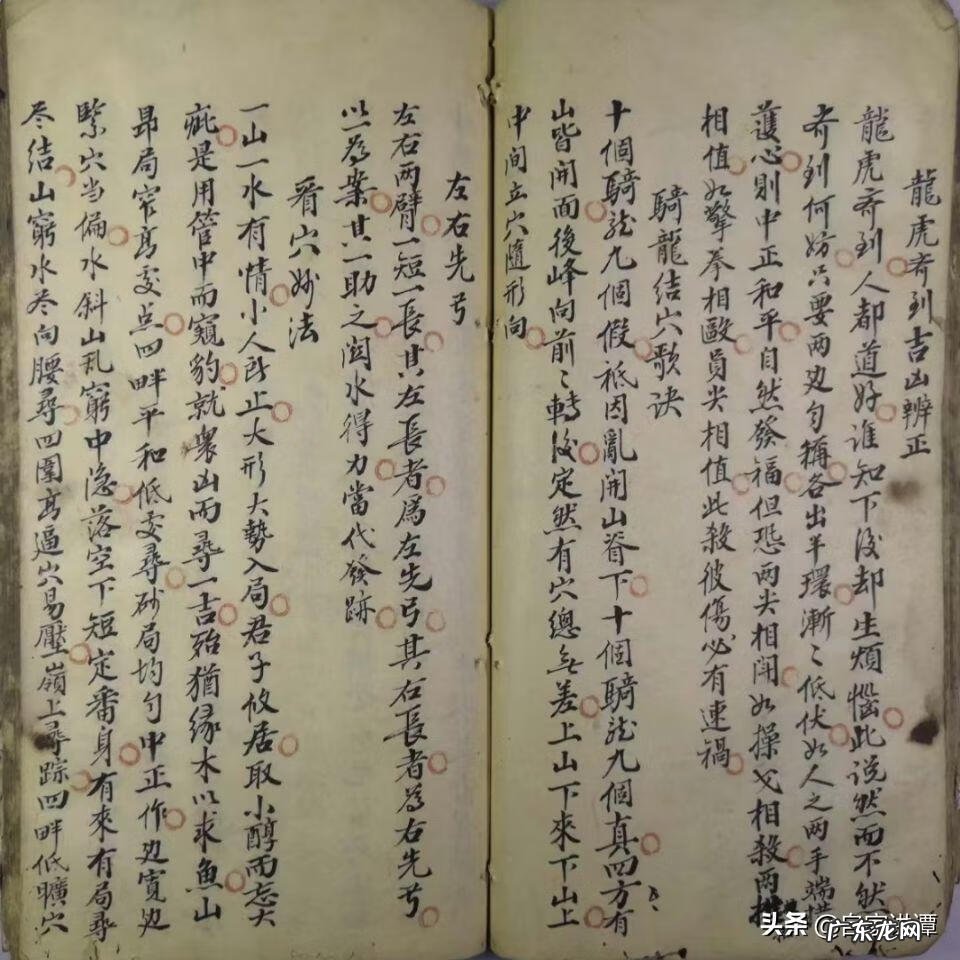 龍虎齐到吉凶辨正
龍虎齐到人都道好誰知下後却生煩惱此说然而不然
齐到何妨只要两边匀稱各出半環漸々低伏如人之两手端拱
護心則中正和平自然發福但恐两尖相開如操戈相殺两拳
相值如擎拳相毆員尖相值此殺彼傷必有速禍
騎龍结穴歌诀
十個騎龙九個假祗因亂開山脊下十個騎龙九個真四方有
山皆開面後峰向前々轉後定然有穴總無差上山下來下山上
中间立穴随形向
左右先弓
左右两臂一短一長其左長者爲左先弓其右長者为右先弓
以一为案其一助之闗水得力當代發跡
看穴妙法
一山一水有情小人所止大形大勢入局君子攸居取小醇而忘大
疵是用管中而窺豹就衆凶而尋一吉殆猶缘木以求魚山
昂局窄高处点四畔平和低处尋砂局均匀中正作边寬边
緊穴当偏水斜山乱窮中隐落空下短定番身有來有局尋
尽结山窮水尽向腰尋四圍高逼穴易壓嶺上尋踪四畔低曠穴
头条
广东龙网